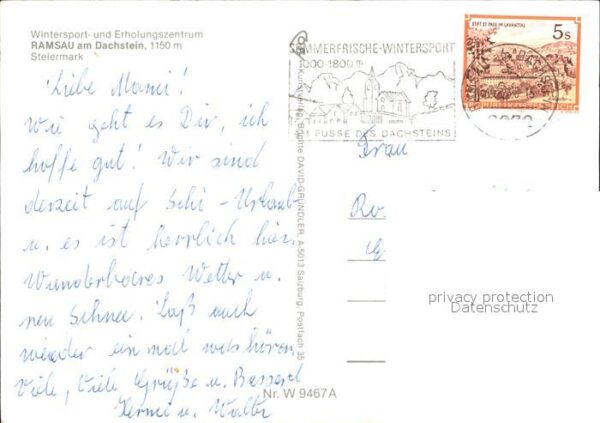 Wintersport- und Erholungszentrum
RAMSAU am Dachstein, 1150 m
Steiermark
Liebe Mami!
Wie geht es Dir, ich
hoffe gut! Wir sind
derzeit auf Schi-Urlaub
u. es ist herrlich hier.
Wunderbares Wetter u.
neu Schnee. Laß auch
wieder einmal was hören.
Viele, Viele Grüße u. Busserl
u. Walter
Kunstverlag Brigitte DAVID-GRÜNDLER, A-5013 Salzburg, Postfach 35
Nr. W 9467A
SOMMERFRISCHE-WINTERSPORT
1000-1800 m
AM FUSSE DES DACHSTEINS
STIFT ST. PAUL IM LAVANTTAL
5 S
REPUBLIK
Frau
Ro
privacy protection
Datenschutz